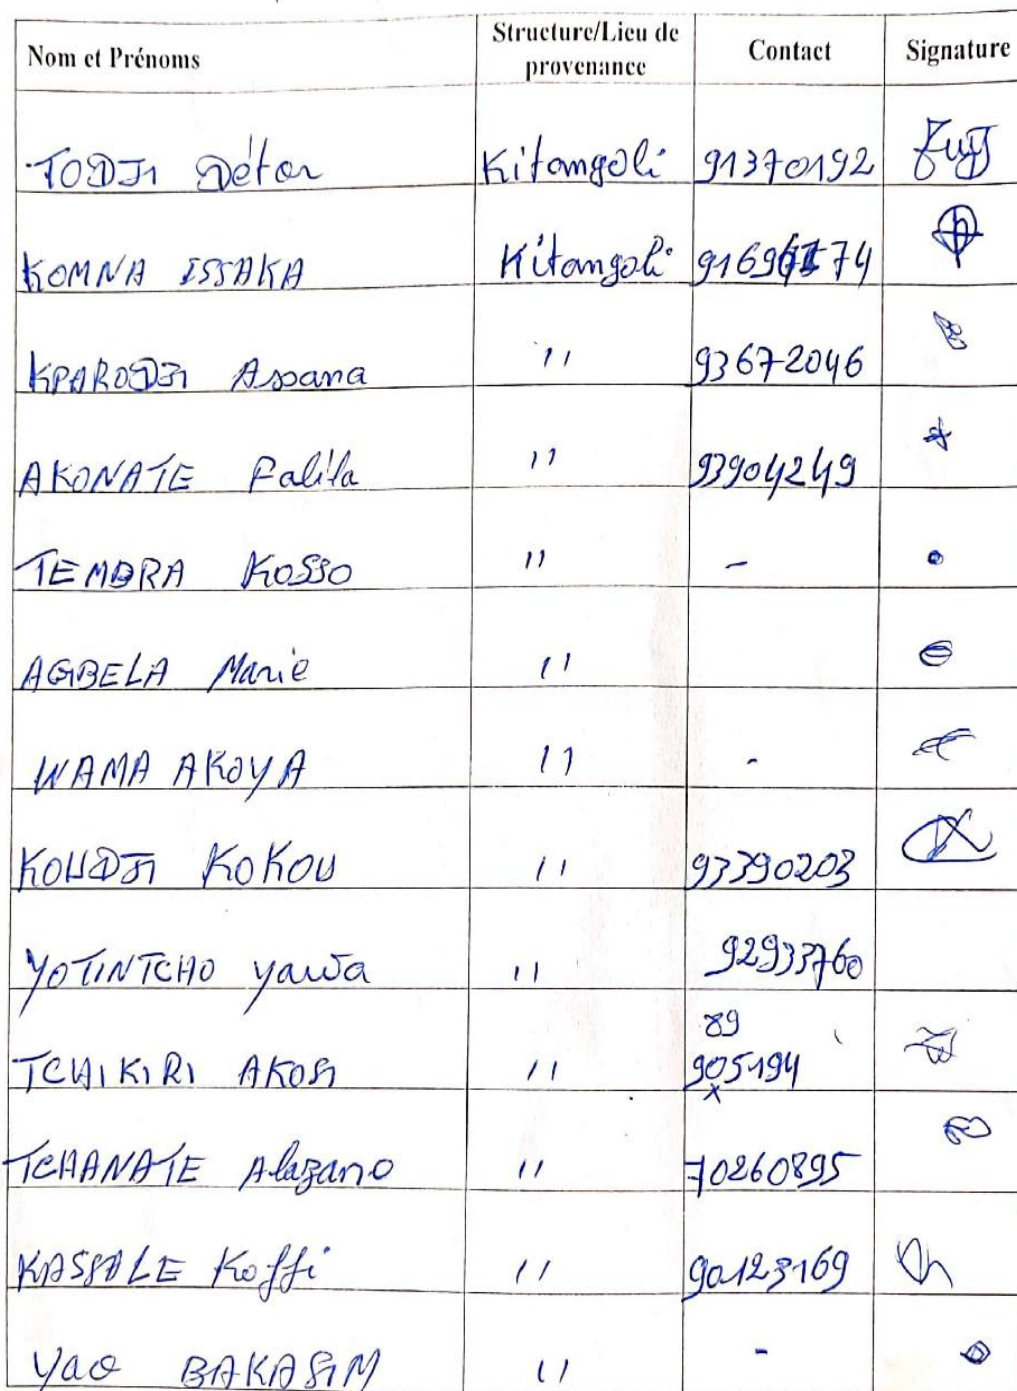 Nom et Prénoms Structure/Lieu de provenance Contact Signature
TODJI Détor Kitangoli 91370192
KOMNA ISSAKA Kitangoli
KPARODJI Assana " 93672046
AKONATE Falila " 93904249
TEMBRA KOSSO " -
AGBELA Marie "
WAMA AKOYA " -
KOUDJI KOKOU " 93390203
YOTINTCHO yawa " 92933760
89
TCHIKIRI AKOSI " 905194
x
TCHANATE Alazano " 70260895
KASSOLE Koffi " 90123169
Yao BAKASIM " -